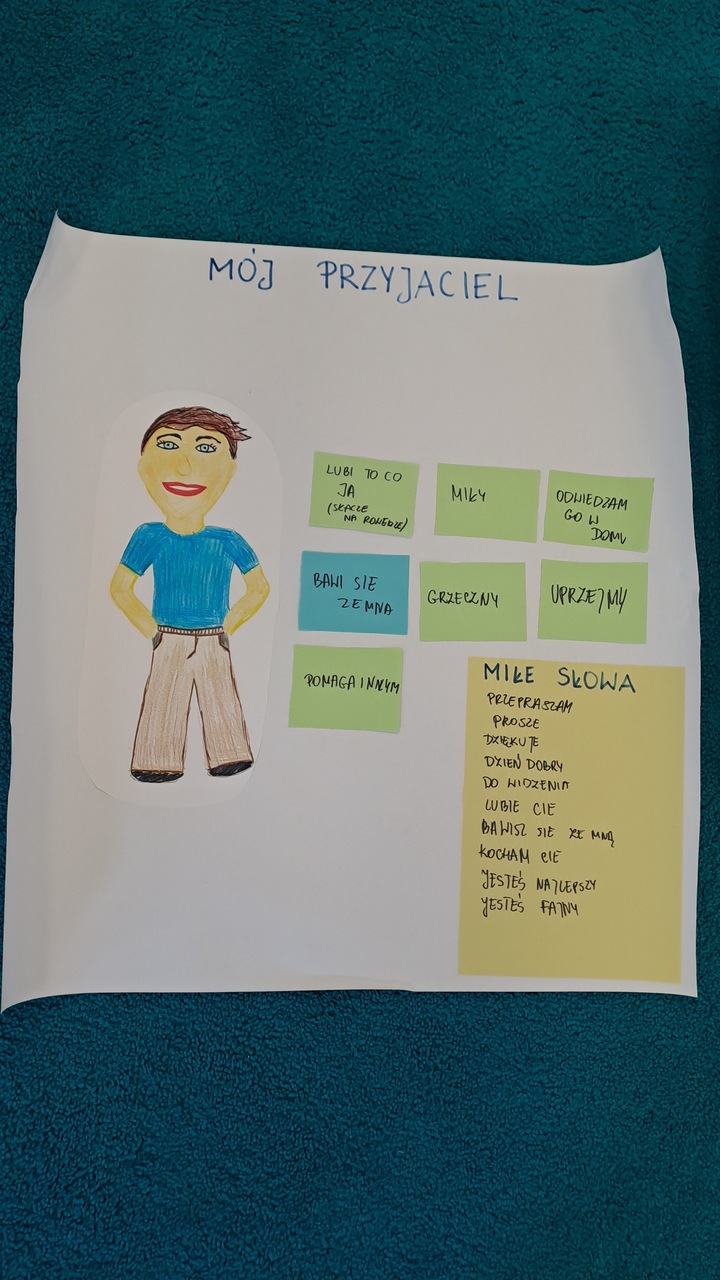 MÓJ PRZYJACIEL
LUBI TO CO
JA
(SKACZE
NA ROWERZE)
MIŁY
ODWIEDZAM
GO W
DOMU
BAWI SIE
ZE MNA
GRZECZNY
UPRZEJMY
POMAGA INNYM
MIŁE SŁOWA
PRZEPRASZAM
PROSZE
DZIĘKUJE
DZIEŃ DOBRY
DO WIDZENIA
LUBIE CIE
BAWISZ SIE ZE MNĄ
KOCHAM CIE
JESTEŚ NAJLEPSZY
JESTEŚ FAJNY